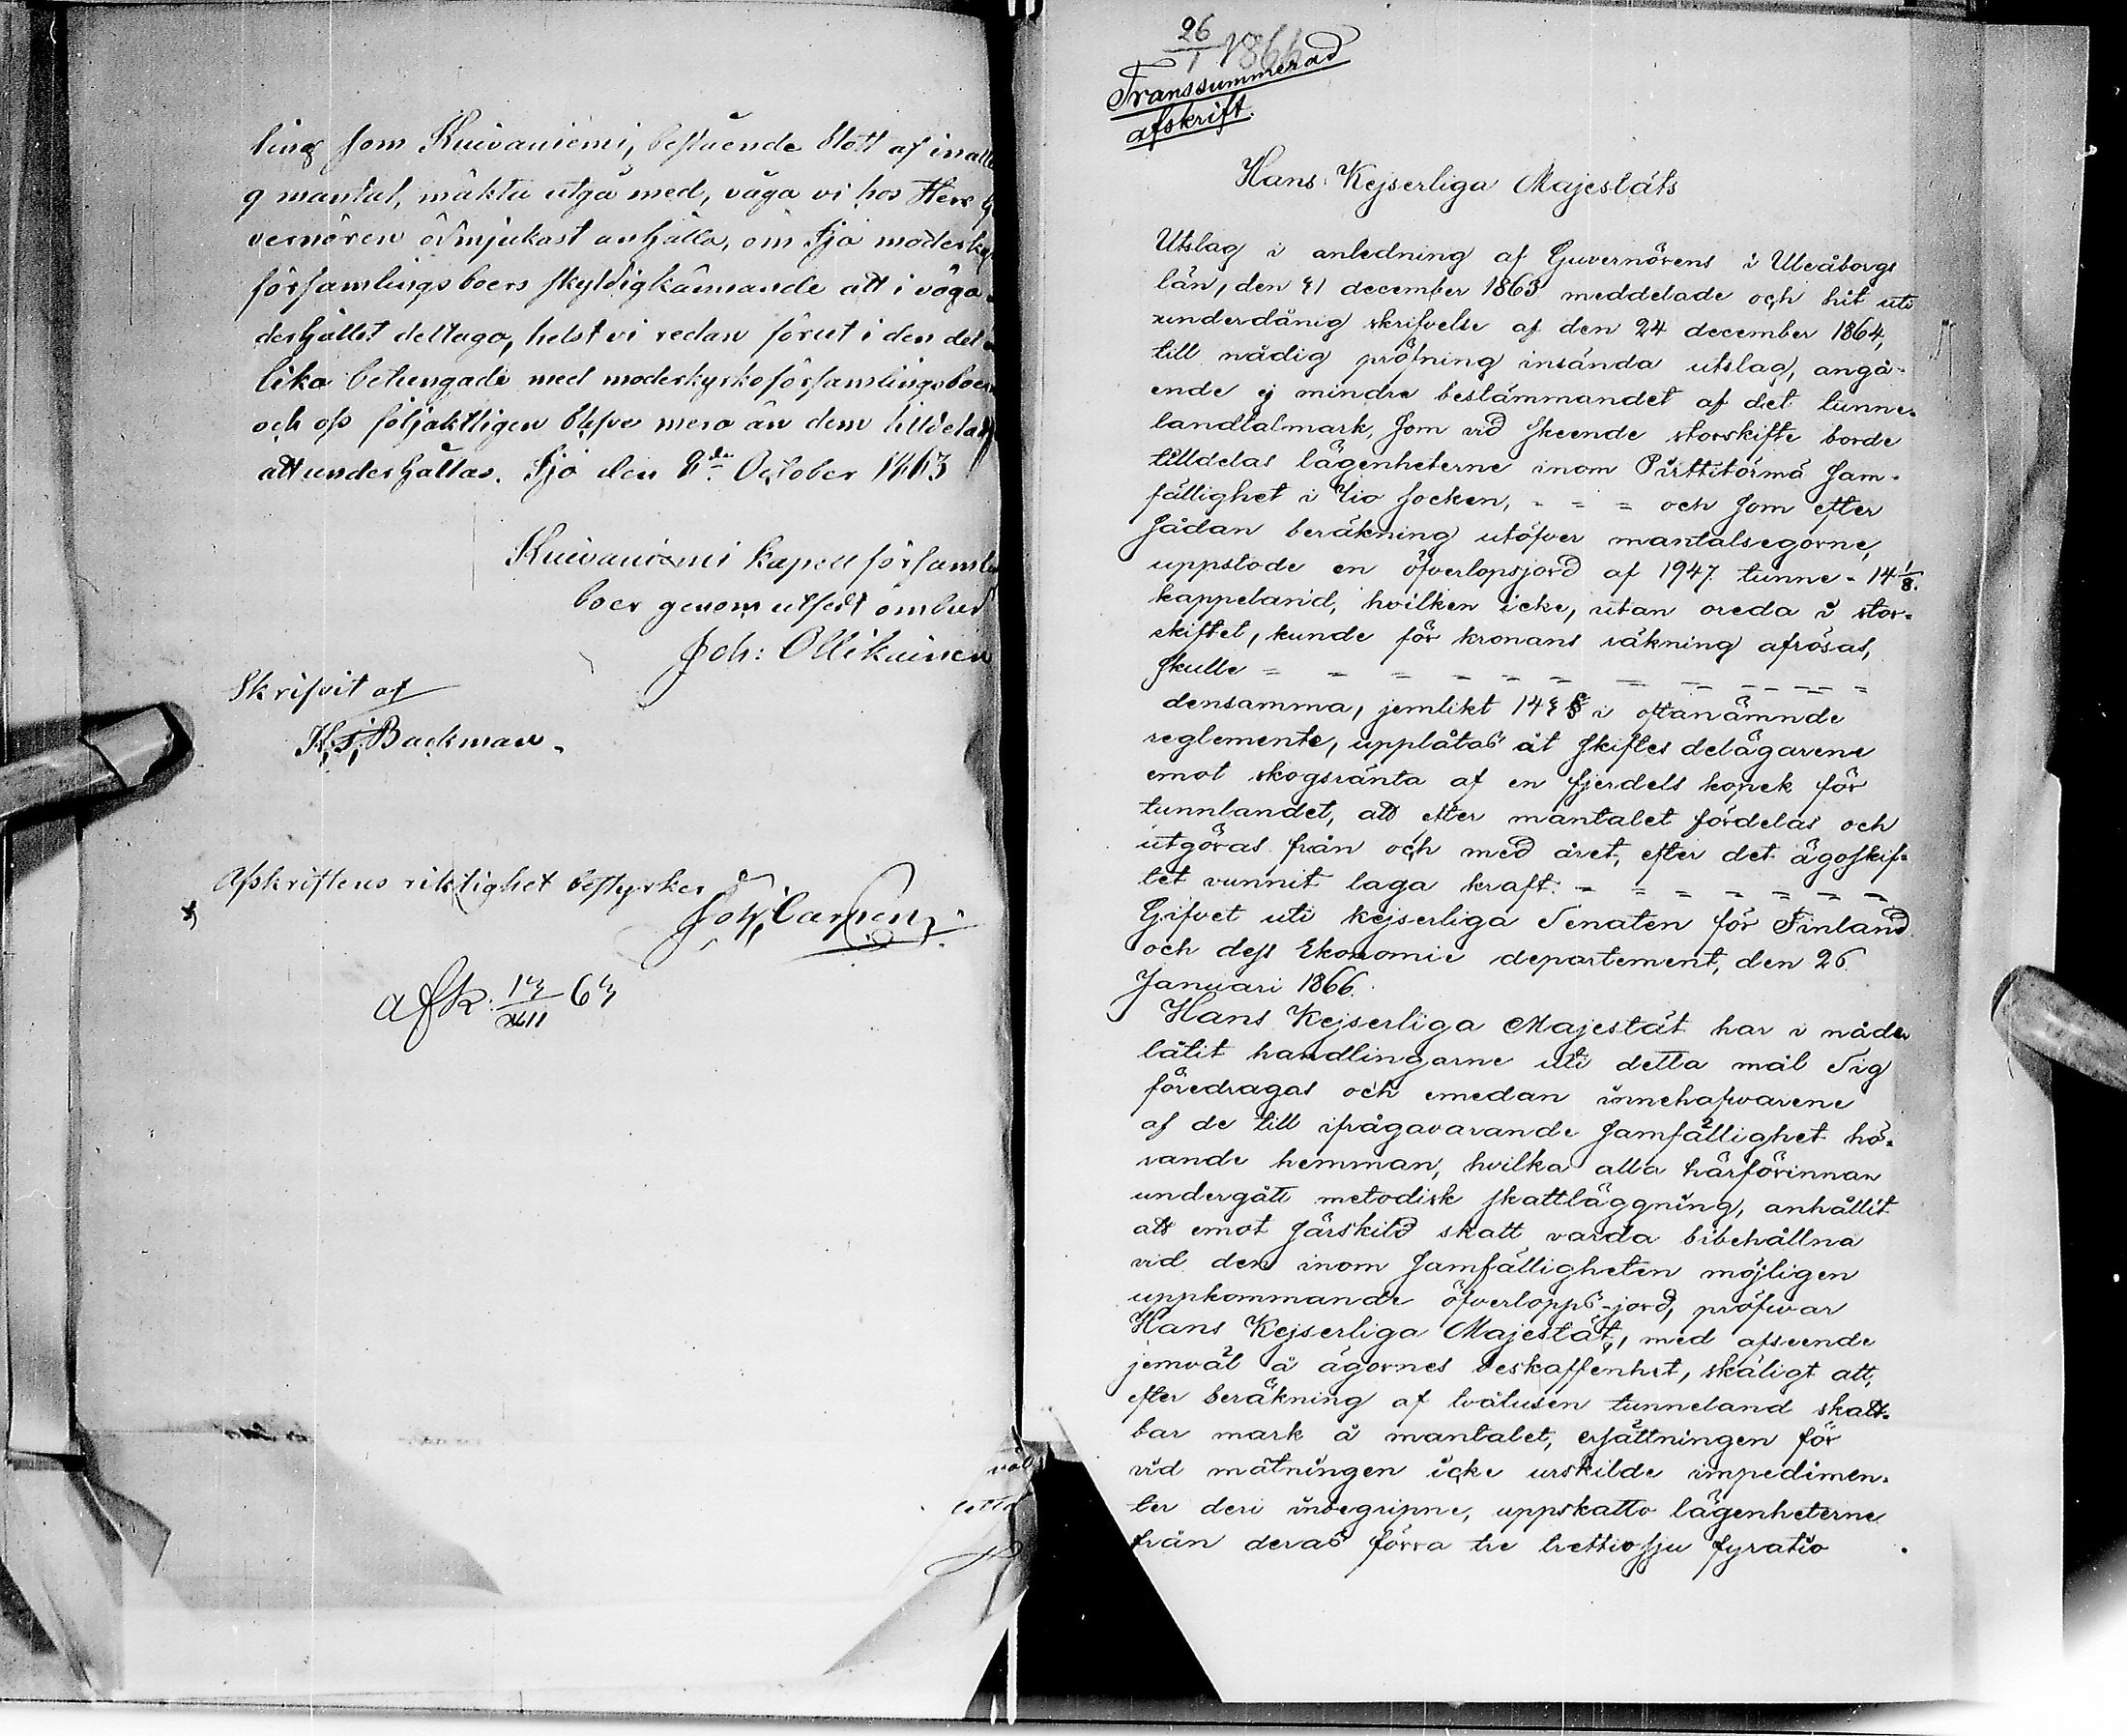 ling som Kuivaniemi, bestående blott af inalles
9 mantal, mäkta utgå med, våga vi hos Herr
vernören ödmjukast anhålla, om Ijo moderky
församlingsboers skyldigkännande att i väga
derhållet deltaga, helst vi redan förut i den del
lika betungade med moderkyrkoförsamlingsboer
och oss följaktligen blifve mera än dem tilldelas
att underhållas. Ijo den 8de October 1863
Kuivaniemi kapell församl
boer genom utsedt ombud
Joh: Ollikainen
Skrifvit af
K. J. Backman.
Afskriftens riktighet bestyrker
Joh, Carpen
afk: 13/XII 63
26/1 1866
Transsummerad
afskrift.
Hans Kejserliga Majestäts
Utslag i anledning af Guvernörens i Uleåborgs
län, den 31 december 1863 meddelade och hit uti
underdånig skrifvelse af den 24 december 1864,
till nådig pröfning insända utslag, angå-
ende ej mindre bestämmandet af det tunne-
landtalmark, som vid skeende storskifte borde
tilldelas lägenheterne inom Pirttitörmä sam-
fällighet i Iio socken, = = = och som efter
sådan beräkning utöfver mantalsegorne,
uppstode en öfverlopsjord af 1947 tunne- 14 1/8.
kappeland, hvilken icke, utan oreda i stor-
skiftet, kunde för kronans räkning afrösas,
skulle = = = = = = = = = = = =
densamma, jemlikt 143 § i oftanämnde
reglemente, upplåtas åt skiftes delägarene
emot skogsränta af en fjerdels kopek för
tunnlandet, att efter mantalet fördelas och
utgöras från och med året, efter det ägoskif-
tet vunnit laga kraft. = = = = = = =
Gifvet uti kejserliga Senaten för Finland
och dess Ekonomie departement, den 26
Januari 1866.
Hans Kejserliga Majestät har i nåder
låtit handlingarne uti detta mål Sig
föredragas och emedan innehafvarene
af de till ifrågavarande samfällighet hö-
rande hemman, hvilka alla härförinnan
undergått metodisk skattläggning, anhållit
att emot särskild skatt varda bibehållna
vid den inom samfälligheten möjligen
uppkommande öfverlopps-jord, pröfvar
Hans Kejserliga Majestät, med afseende
jemväl å ägornes beskaffenhet, skäligt att,
efter beräkning af tvåtusen tunneland skatt-
bar mark å mantalet, ersättningen för
vid mätningen icke urskilde impedimen-
ter deri inbegripne, uppskatta lägenheterne
från deras förra tre trettiosju fyratio